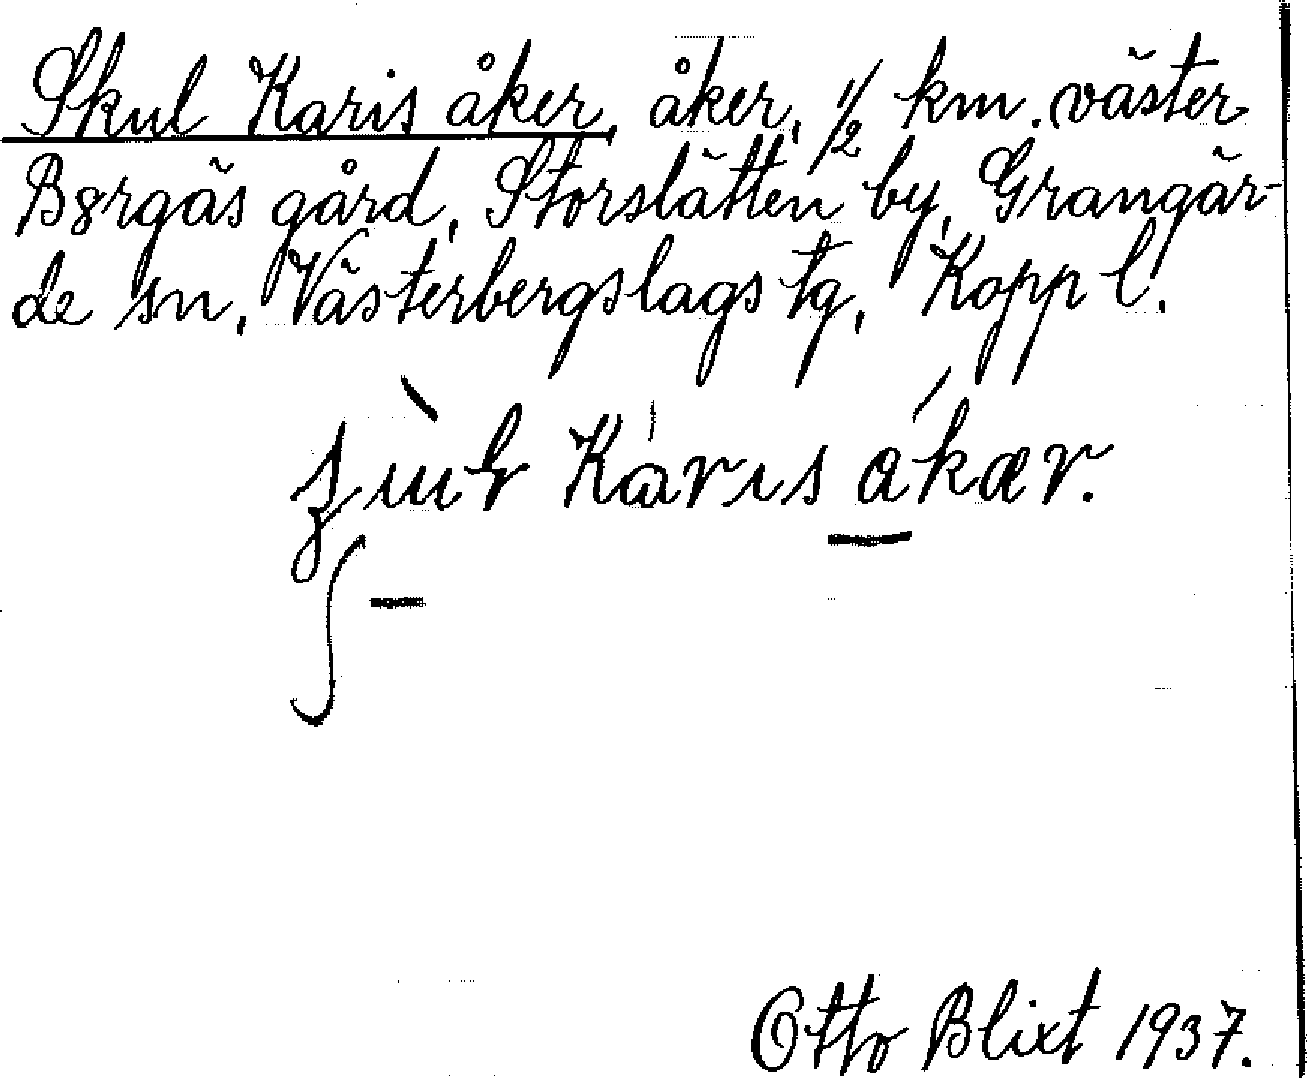 Skul Karis åker, åker, 1/2 km. väster
Bergäs gård, Storslätten by, Grangär-
de sn, Västerbergslags tg, Kopp l.
Karıs
Otto Blixt 1937.